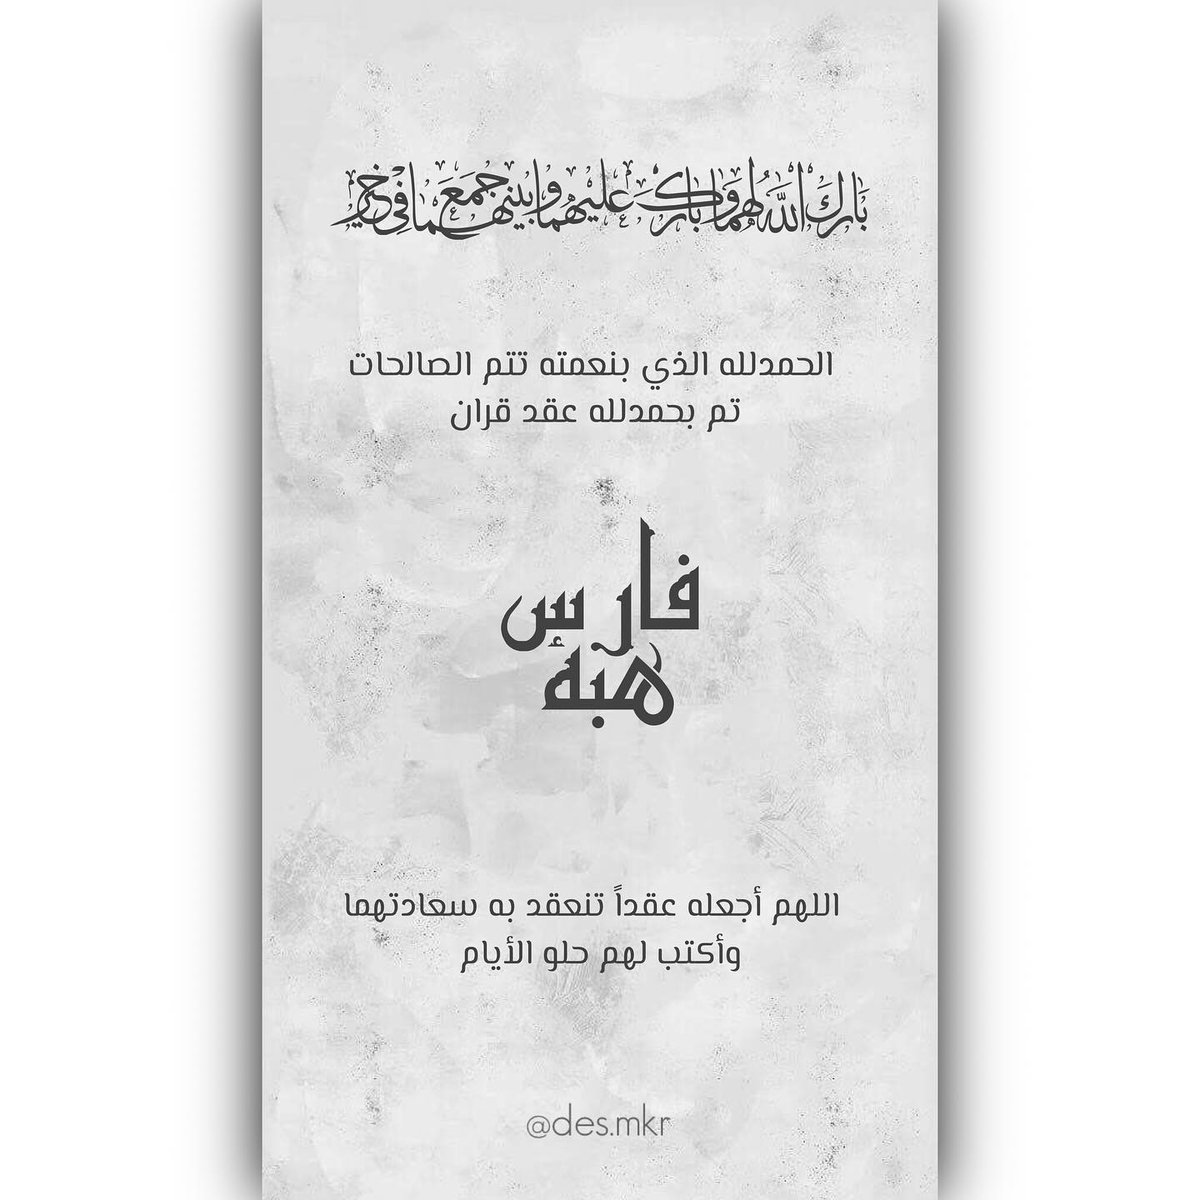 بَارَكَ اللَّهُ لهما وبارك عليهما وجمع بينهما في خير
الحمدلله الذي بنعمته تتم الصالحات
تم بحمدلله عقد قران
فارس
هبه
اللهم أجعله عقداً تنعقد به سعادتهما
وأكتب لهم حلو الأيام
@des.mkr